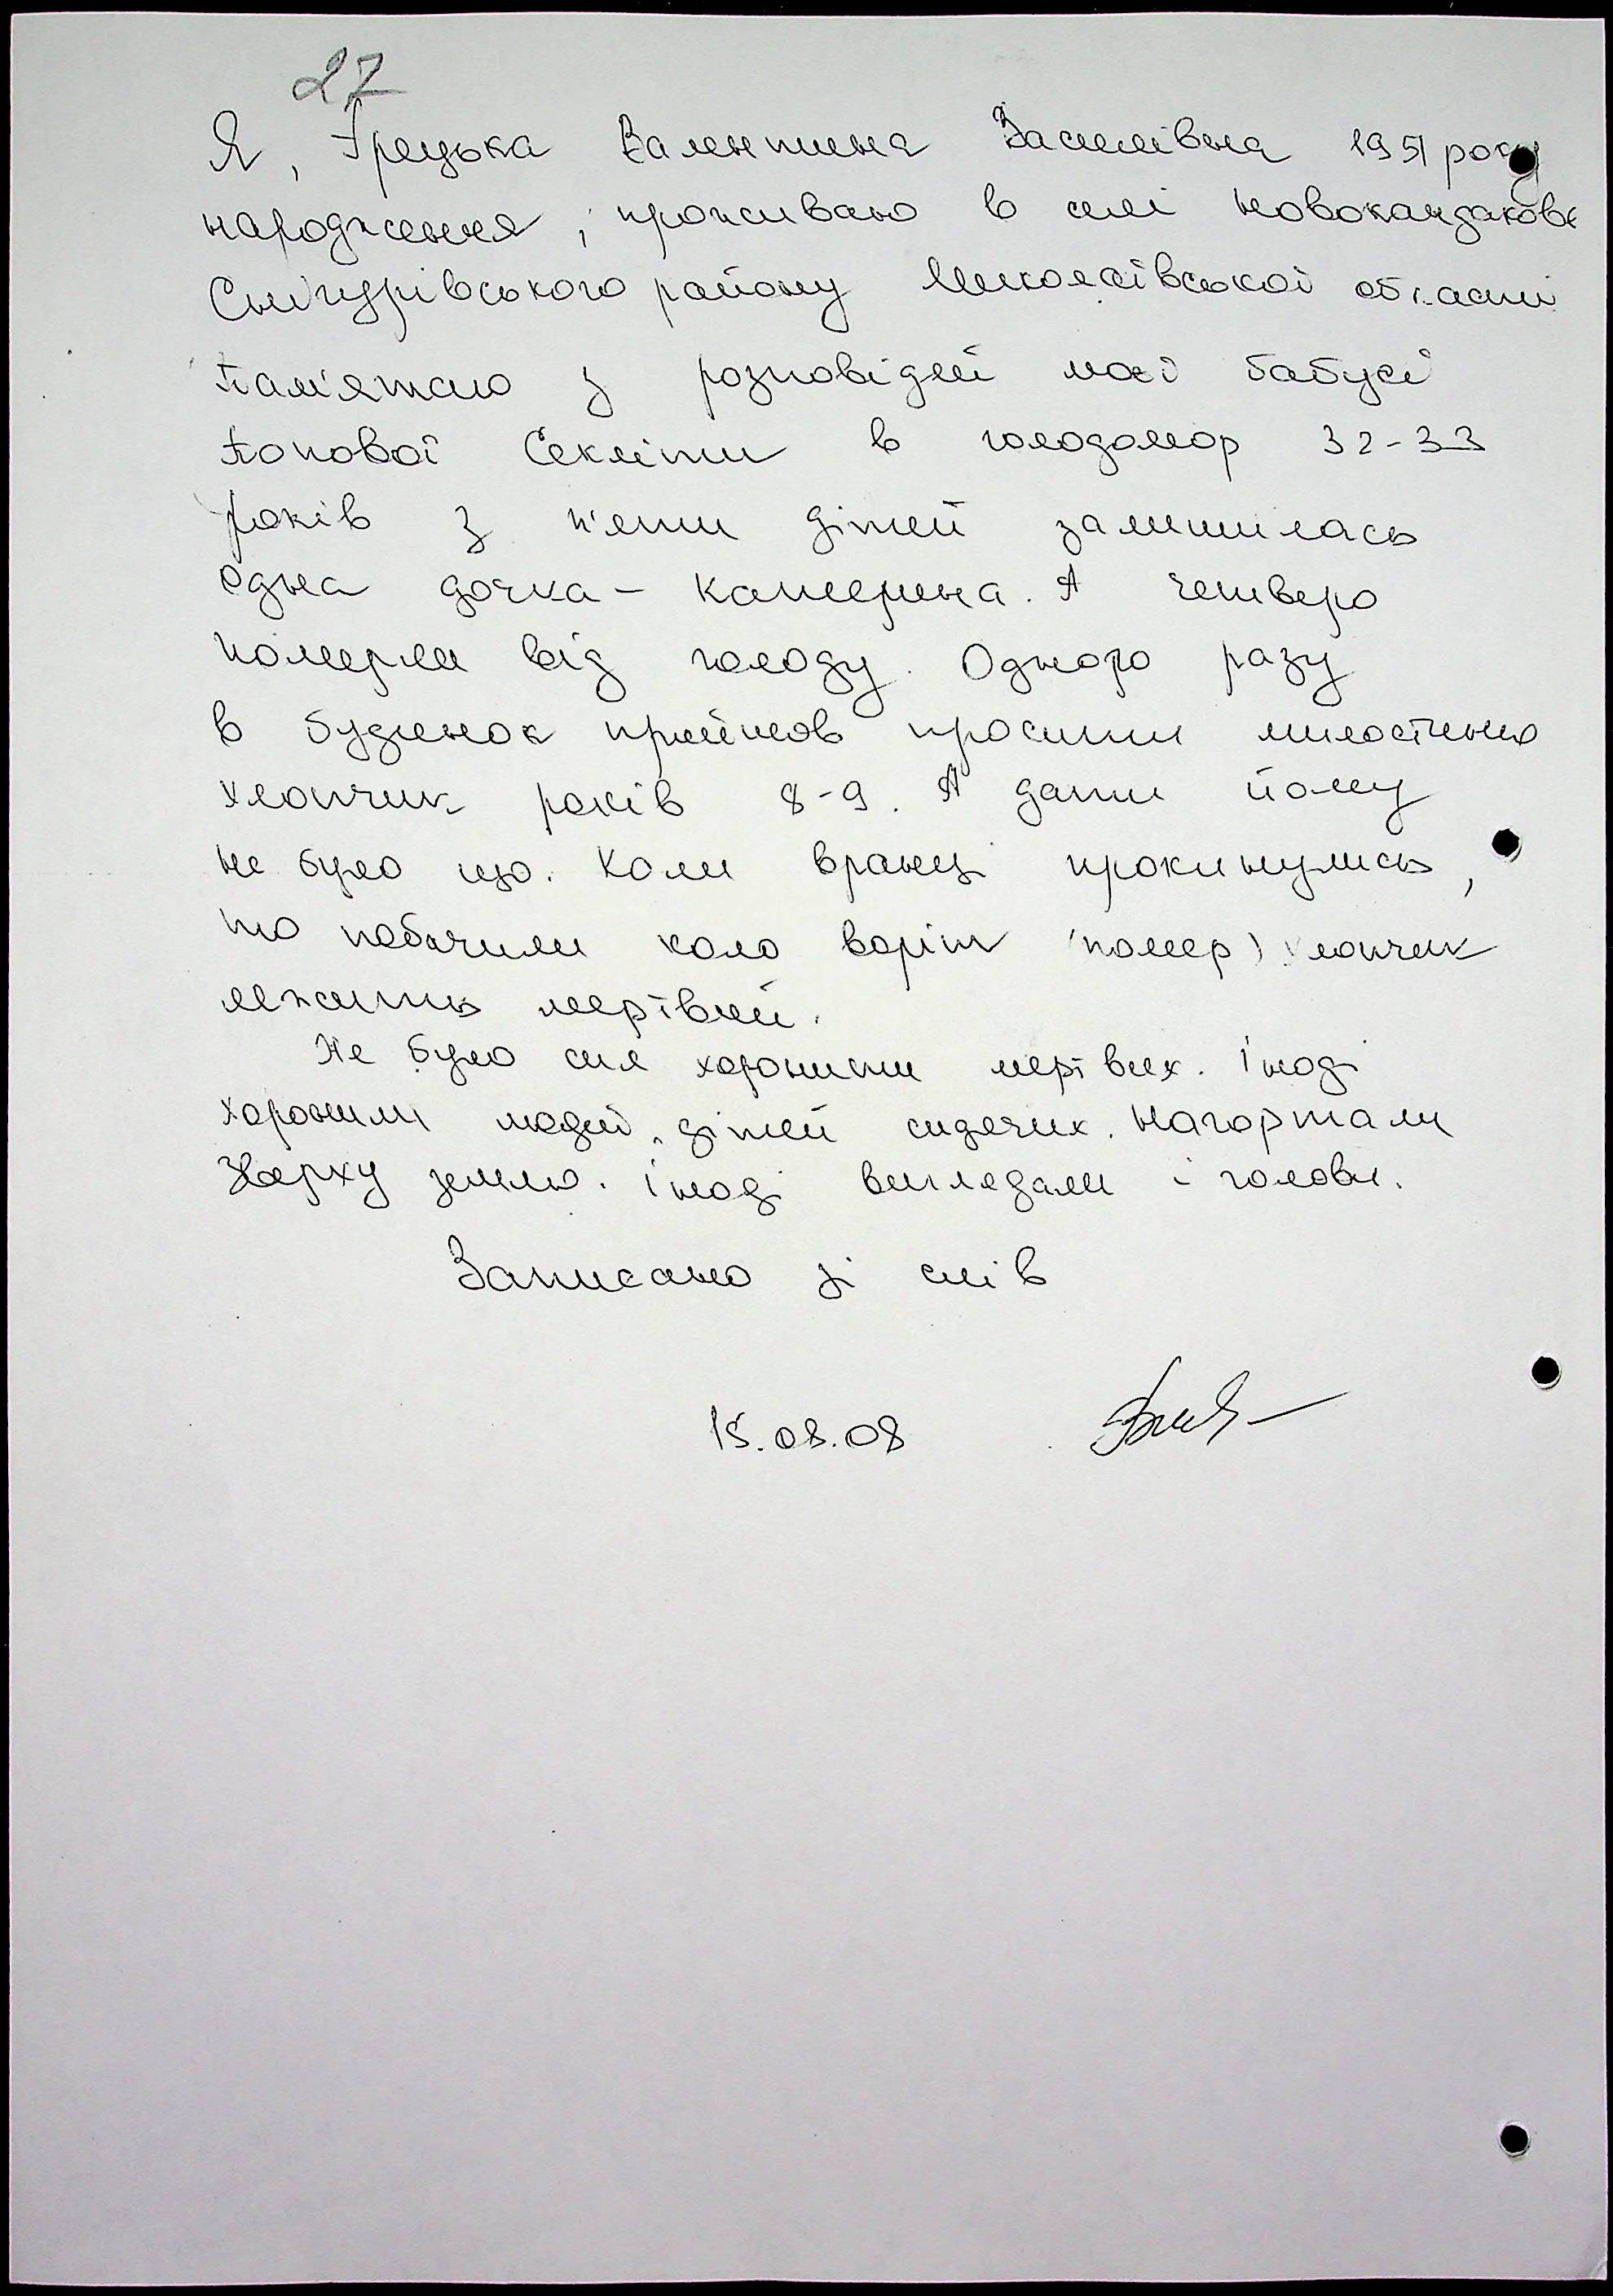 27
Я, Грецька Валентина Василівна 1951 року
народження, проживаю в селі Новокандакове
Снігурівського району Миколаївської області
Пам'ятаю з розповідей моєї бабусі
Попової Секліти в голодомор 32-33
років з п'яти дітей залишилась
одна дочка - Катерина. А четверо
померли від голоду. Одного разу
в будинок прийшов просити милостиню
хлопчик років 8-9. А дати йому
не було що. Коли вранці прокинулись,
то побачили коло воріт (помер) хлопчик
лежить мертвий.
Не було сил хоронити мертвих. Іноді
хоронили людей, дітей сидячих. Нагортали
зверху землю. Іноді виглядали і голови.
Записано зі слів
15.08.08